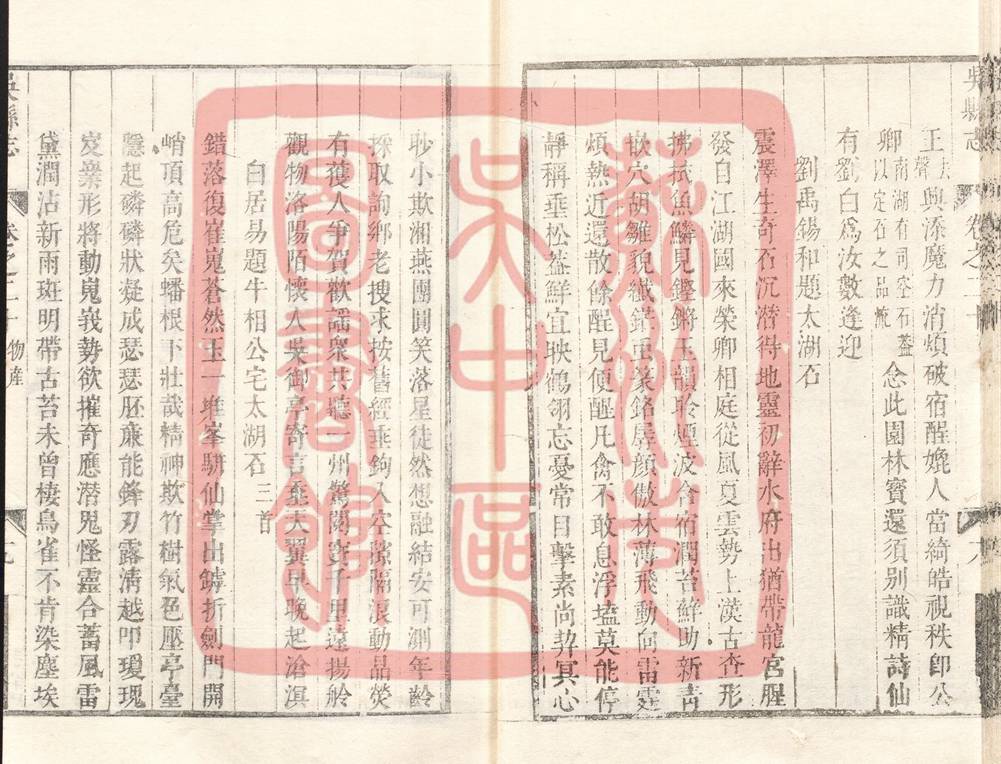 吳縣志 卷之二十
王上聲興添魔力消煩破宿酲媲人當綺皓視秩卽公
卿南湖有司空石蓋以定石之品流念此園林寶還須别識精詩仙
有劉白爲汝數逢迎
劉禹錫和題太湖石
震澤生奇石沉潜得地靈初辭水府出猶帶龍宮腥
發自江湖國來榮卿相庭從風夏雲勢上漢古查形
拂拭魚鱗見鏗鏘玉韻聆煙波含宿潤苔蘚助新青
嵌穴胡雛貌纖鋩蟲篆銘孱顔傲林薄飛動向雷霆
煩熱近還散餘酲見便醒凡禽不敢息浮壒莫能停
靜稱垂松蓋鮮宜映鶴翎忘憂常目擊素尚與冥心
眇小欺湘燕團圓笑落星徒然想融結安可測年齡
採取詢鄉老搜求按舊經垂鉤入空隙隔浪動晶熒
有獲人争賀歡謡衆共聽一州驚閱寶千里遠揚舲
觀物洛陽陌懷人吳御亭寄言垂天翼早晚起滄溟
白居易題牛相公宅太湖石三首
錯落復崔嵬蒼然玉一堆峯駢仙掌出罅折劍門開
峭頂高危矣蟠根下壯哉精神欺竹樹氣色壓亭臺
隱起磷磷狀凝成瑟瑟胚廉能鋒刃露清越叩瓊瑰
岌嶪形將動嵬峩勢欲摧奇應潜鬼怪靈合蓄風雷
黛潤沾新雨斑明帶古苔未曾棲鳥雀不肯染塵埃
吳縣志 卷之二十 物産
蘇州市
吳中區
圖書館